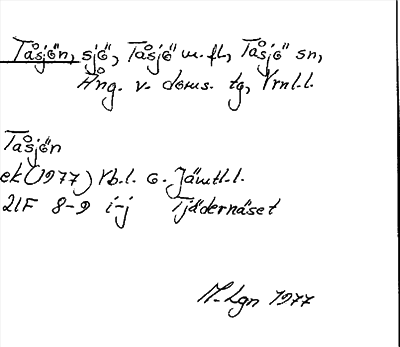 Tåsjön, sjö, Tåsjö m. fl., Tåsjö sn,
Ång. v. doms. tg, Vrnl.l.
Tåsjön
ek (1977) Vb.l. o. Jämtl.l.
21F 8-9 i-j Tjädernäset
M. Lgn 1977